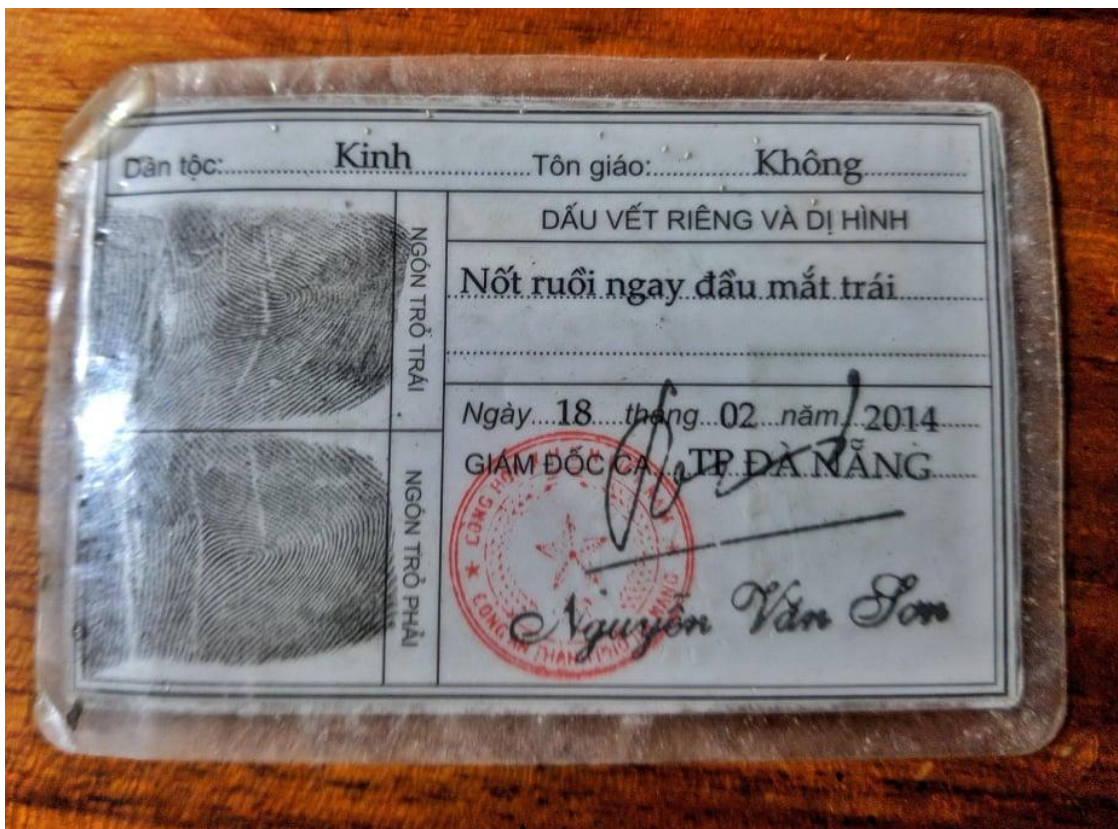 Dân tộc: Kinh Tôn giáo: Không
NGÓN TRỎ TRÁI
DẤU VẾT RIÊNG VÀ DỊ HÌNH
Nốt ruồi ngay đầu mắt trái
Ngày 18 tháng 02 năm 2014
GIÁM ĐỐC CA TP ĐÀ NẴNG
NGÓN TRỎ PHẢI
CỘNG
CÔNG AN THÀNH PHỐ
Nguyễn Văn Sơn